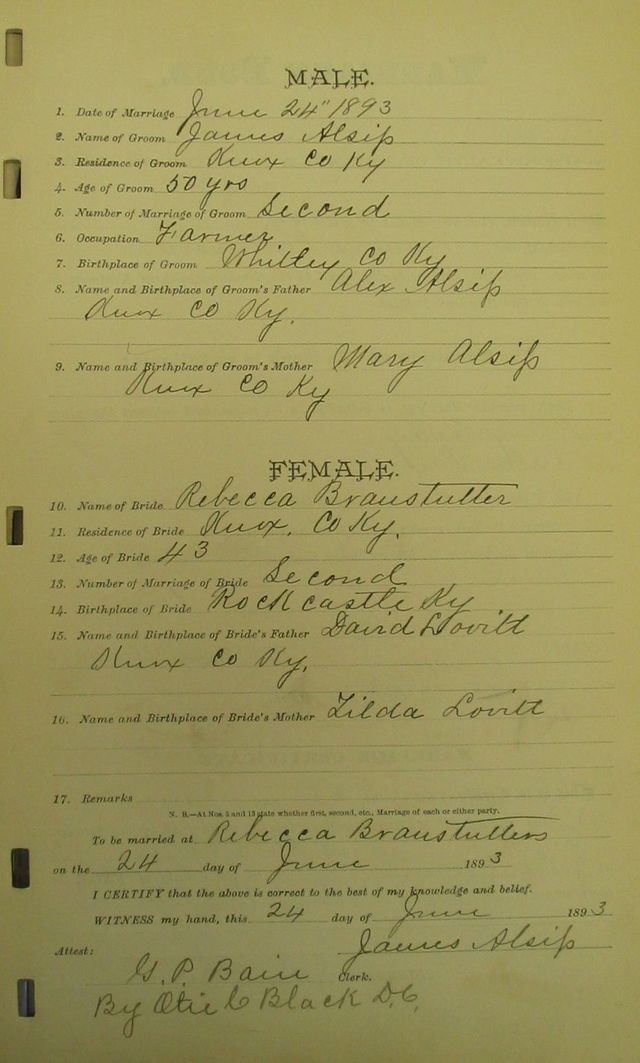 MALE.
1. Date of Marriage June 24" 1893
2. Name of Groom James Alsip
3. Residence of Groom Knox Co Ky
4. Age of Groom 50 yrs
5. Number of Marriage of Groom Second
6. Occupation Farmer
7. Birthplace of Groom Whitley Co Ky
8. Name and Birthplace of Groom's Father Alex Alsip
Knox Co Ky.
9. Name and Birthplace of Groom's Mother Mary Alsip
Knox Co Ky
FEMALE.
10. Name of Bride Rebecca Branstutter
11. Residence of Bride Knox. Co Ky.
12. Age of Bride 43
13. Number of Marriage of Bride Second
14. Birthplace of Bride Rockcastle Ky
15. Name and Birthplace of Bride's Father David Lovitt
Knox Co Ky.
16. Name and Birthplace of Bride's Mother Tilda Lovitt
17. Remarks
N. B.—At Nos. 5 and 13 state whether first, second, etc., Marriage of each or either party.
To be married at Rebecca Branstutters
on the 24 day of June 1893
I CERTIFY that the above is correct to the best of my knowledge and belief.
WITNESS my hand, this 24 day of June 1893
James Alsip
Attest:
G. P. Bain Clerk.
By Black D.C.